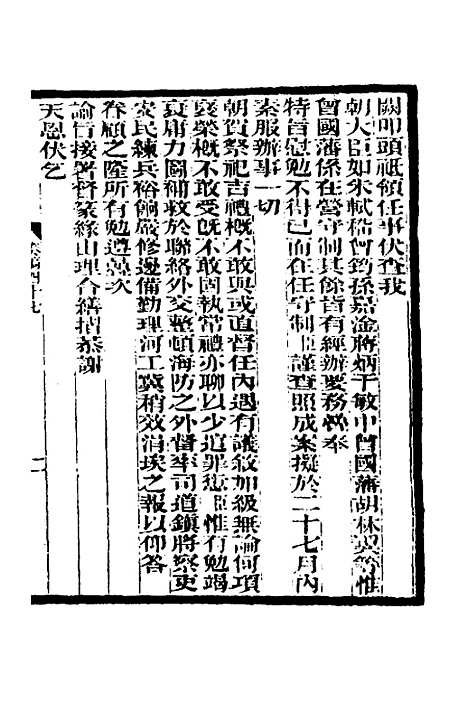 闕叩頭祗領任事伏查我
朝大臣如朱軾稽曾筠孫嘉淦蔣炳于敏中曾國藩胡林翼等惟
曾國藩係在營守制其餘皆有經辦要務疊奉
特旨慰勉不得已而在任守制臣謹查照成案擬於二十七月內
素服辦事一切
朝賀祭祀吉禮概不敢與或直督任內遇有議敘加級無論何項
褒榮概不敢受旣不敢固執常禮亦聊以少逭罪愆臣惟有勉竭
衰庸力圖補救於聯絡外交整頓海防之外督率司道鎮將察吏
安民練兵裕餉嚴修邊備勤理河工冀稍效涓埃之報以仰答
眷顧之隆所有勉遵疊次
諭旨接署督篆緣由理合繕摺恭謝
天恩伏乞
二